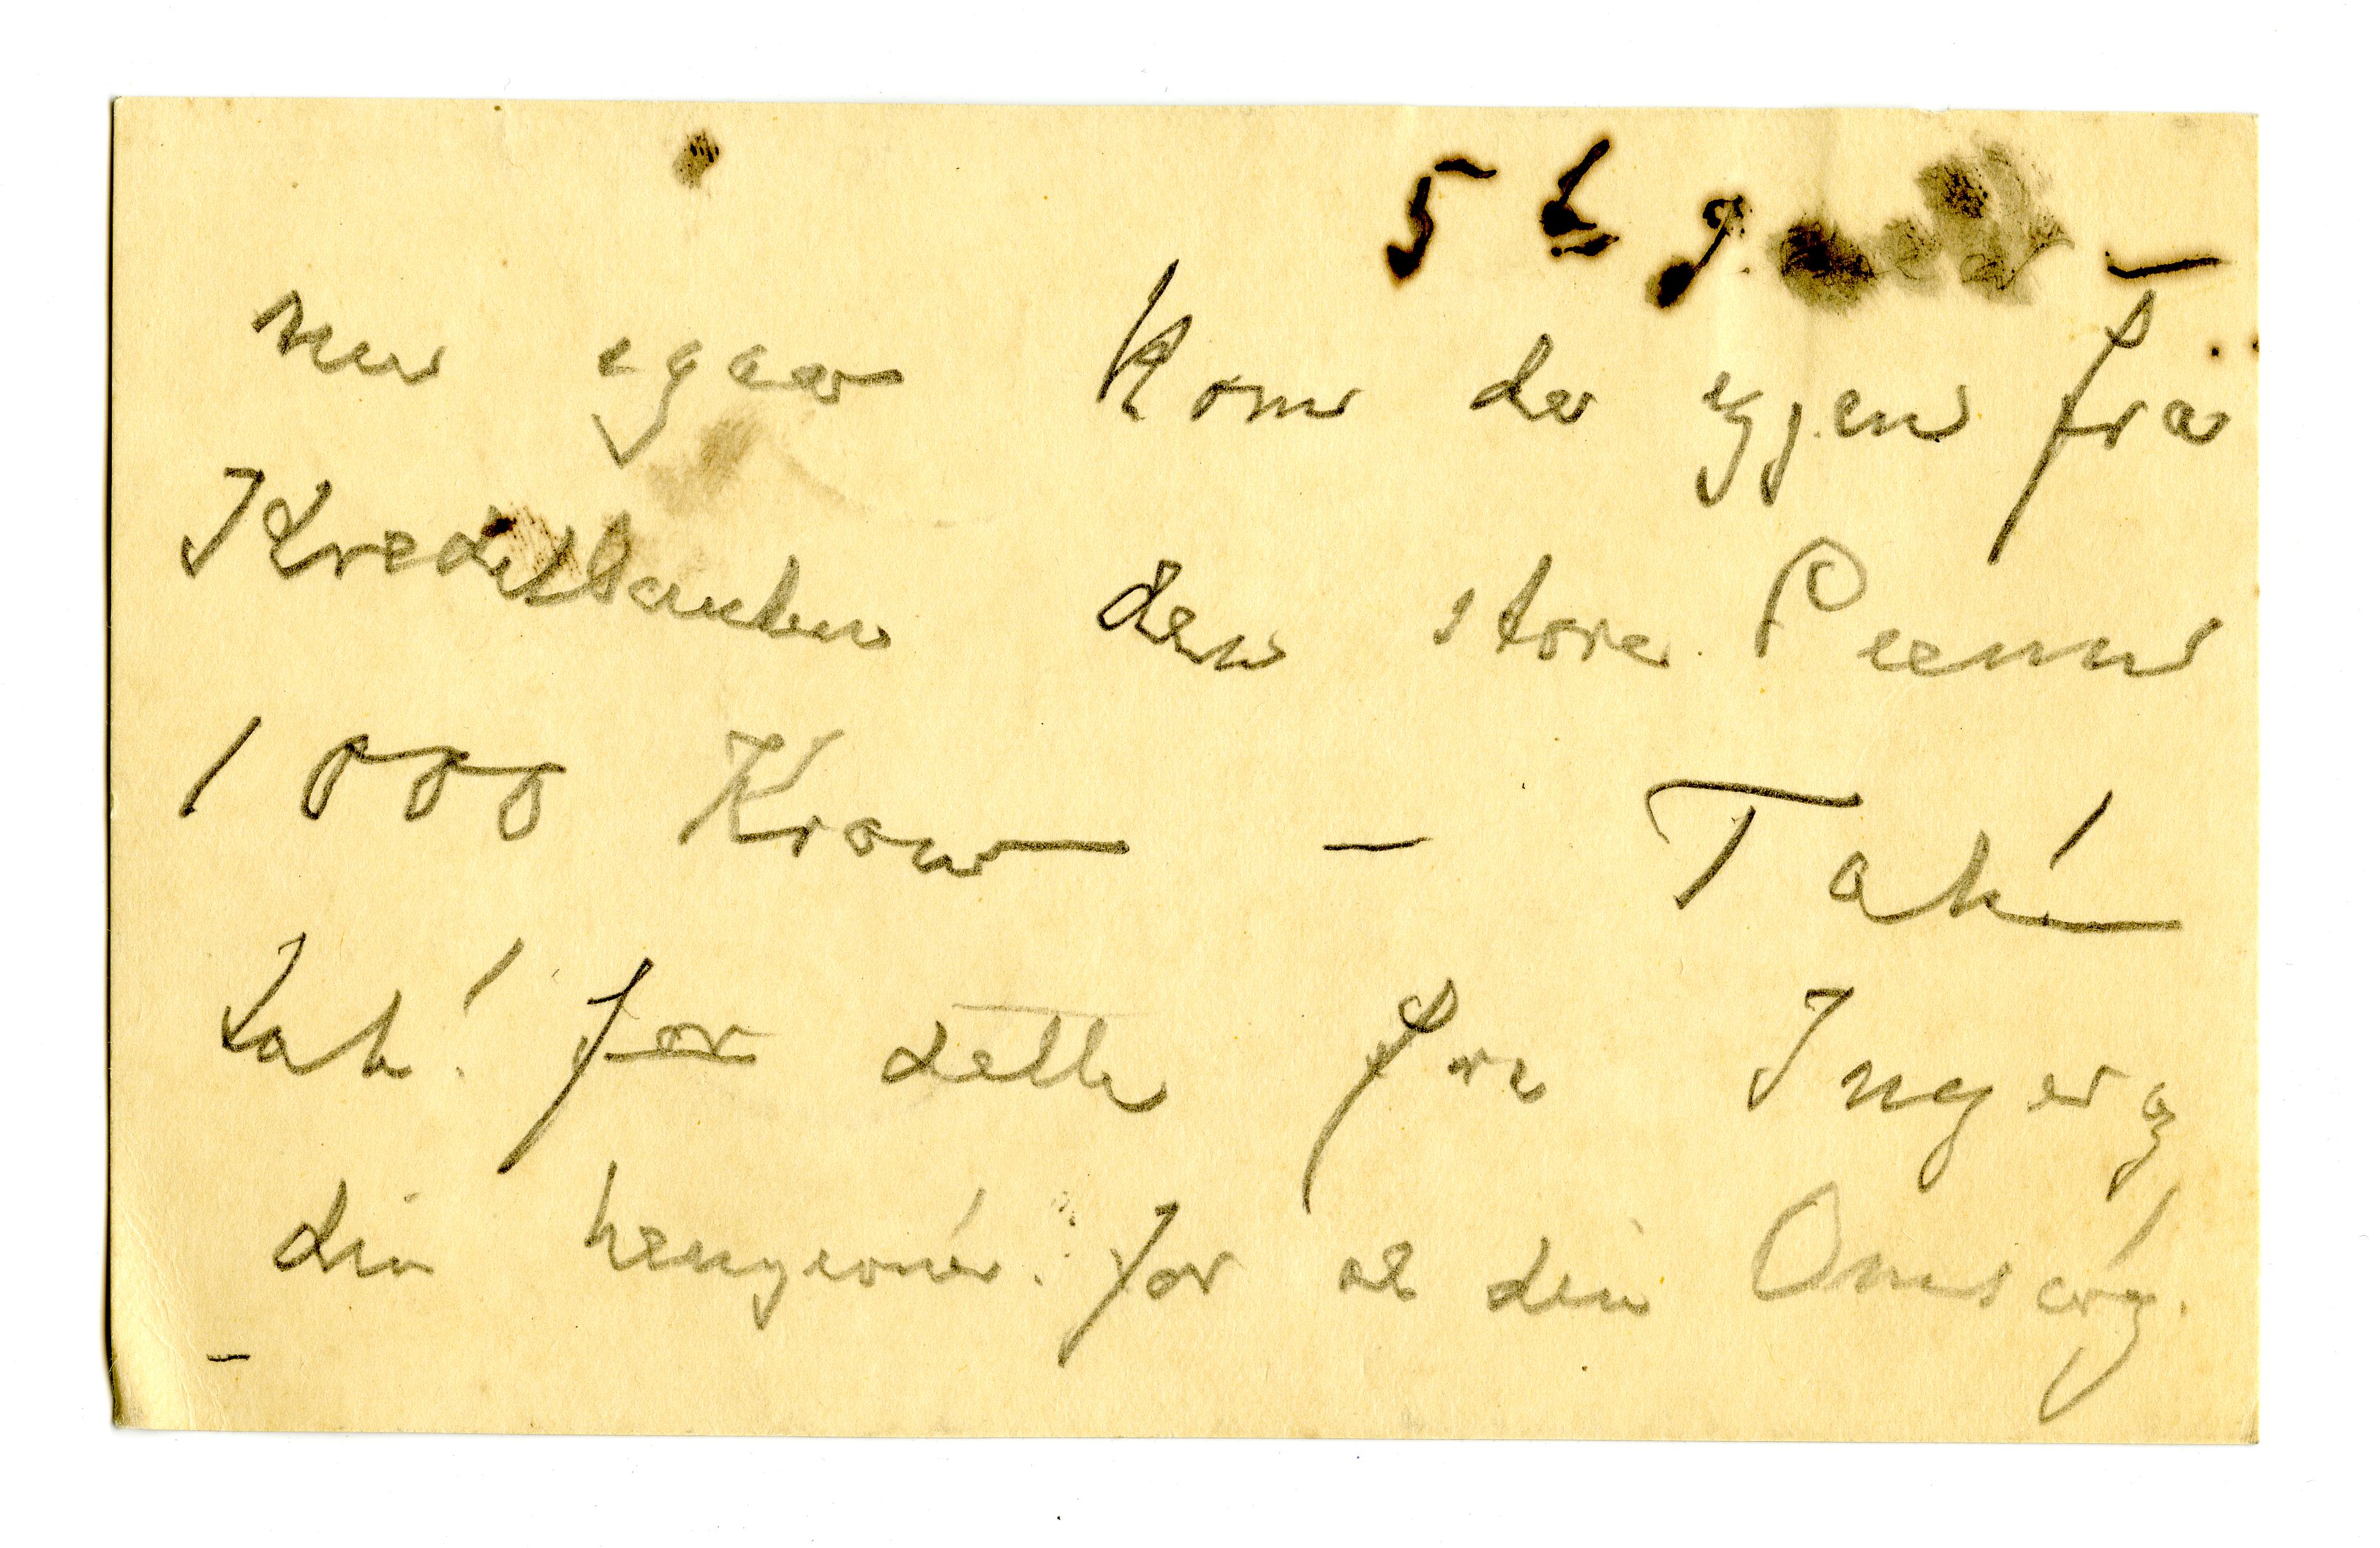 5 te g
nu egen kom der igjen fra
Kreditbanken den store Penn
1000 Kroner – Tak!
tak! for dette for Inger og
din hengivne. for al din Omsorg.
–